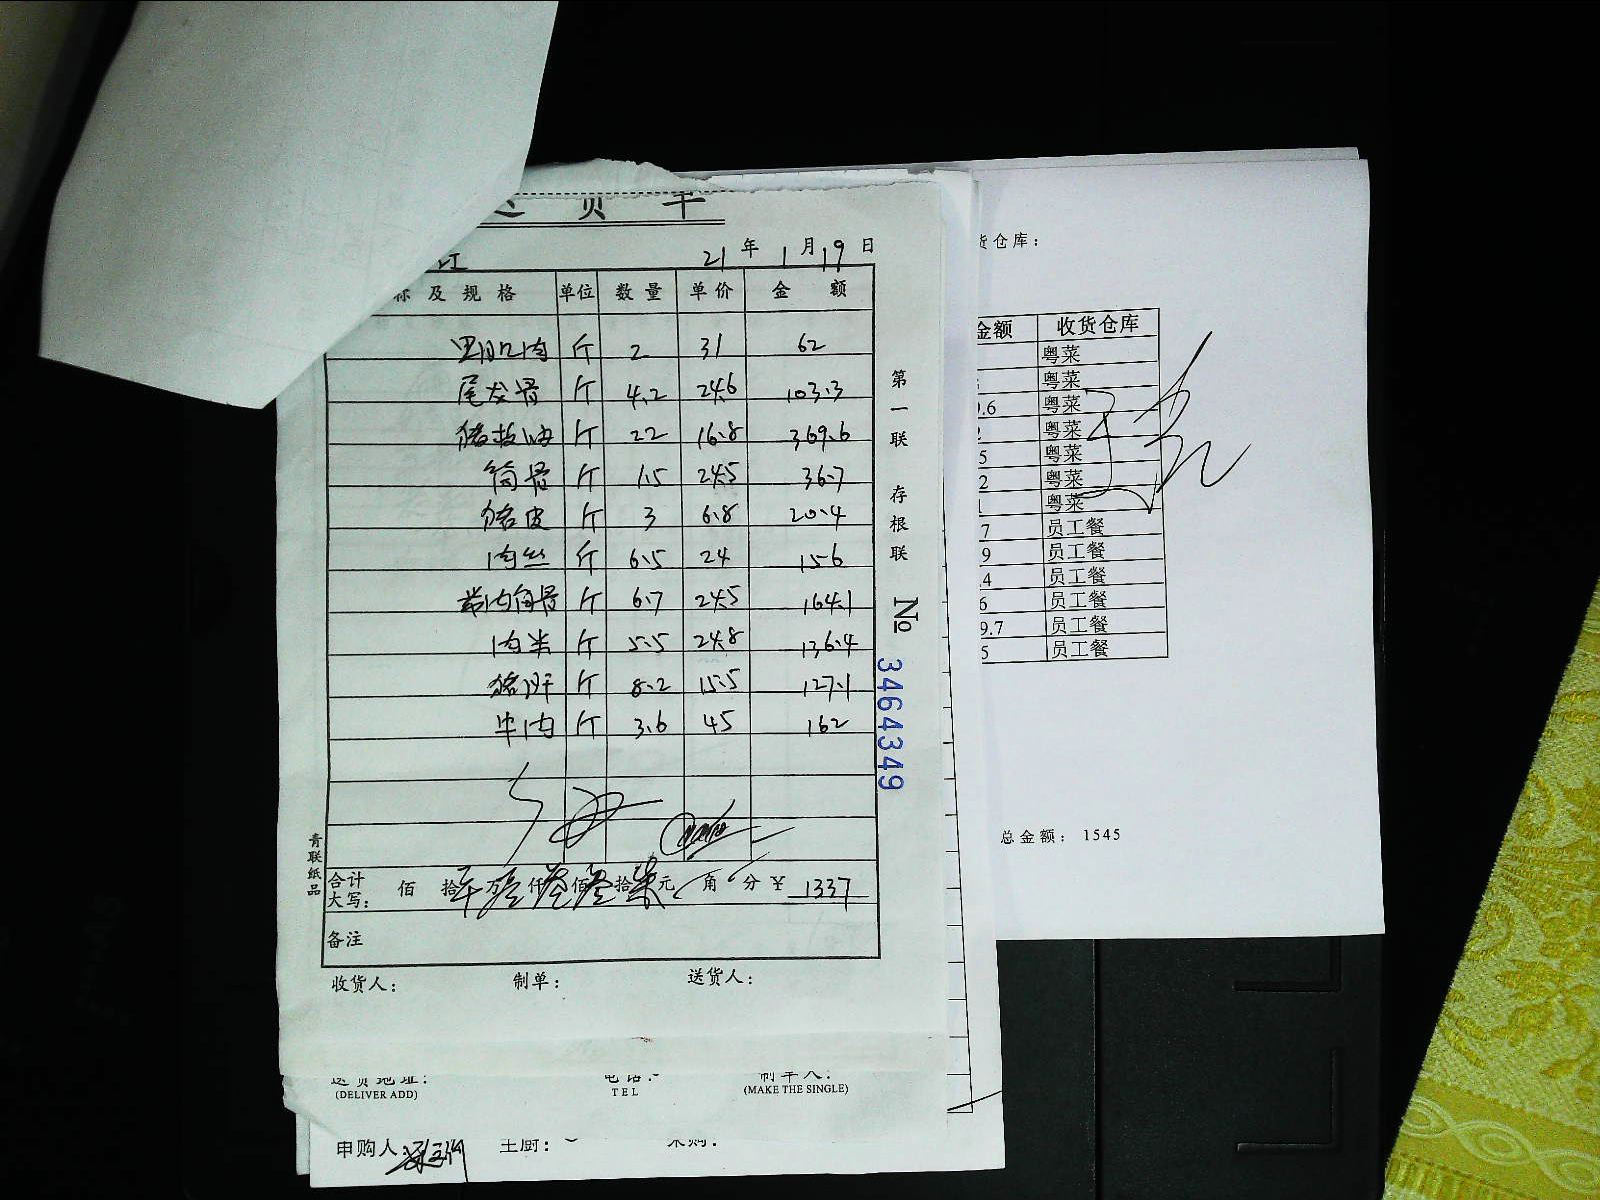 送货单
21年1月19日
及规格 单位 数量 单价 金额
里肌肉 斤 2 31 62
尾龙骨 斤 4.2 24.6 103.3
猪板油 斤 22 16.8 369.6
筒骨 斤 1.5 24.5 36.7
猪皮 斤 3 6.8 20.4
肉丝 斤 6.5 24 156
带肉筒骨 斤 6.7 24.5 164.1
肉米 斤 5.5 24.8 136.4
猪肝 斤 8.2 15.5 127.1
牛肉 斤 3.6 45 162
合计大写: 佰 拾 万壹仟叁佰叁拾柒元 角 分 ¥ 1337
备注
收货人: 制单: 送货人:
第一联 存根联 № 3464349
青联纸品
送货地址: 电话: 制单人:
(DELIVER ADD) TEL (MAKE THE SINGLE)
申购人: 主厨: 采购:
货仓库:
金额 收货仓库
粤菜
粤菜
.6 粤菜
粤菜
5 粤菜
2 粤菜
粤菜
7 员工餐
9 员工餐
.4 员工餐
6 员工餐
9.7 员工餐
5 员工餐
总金额: 1545